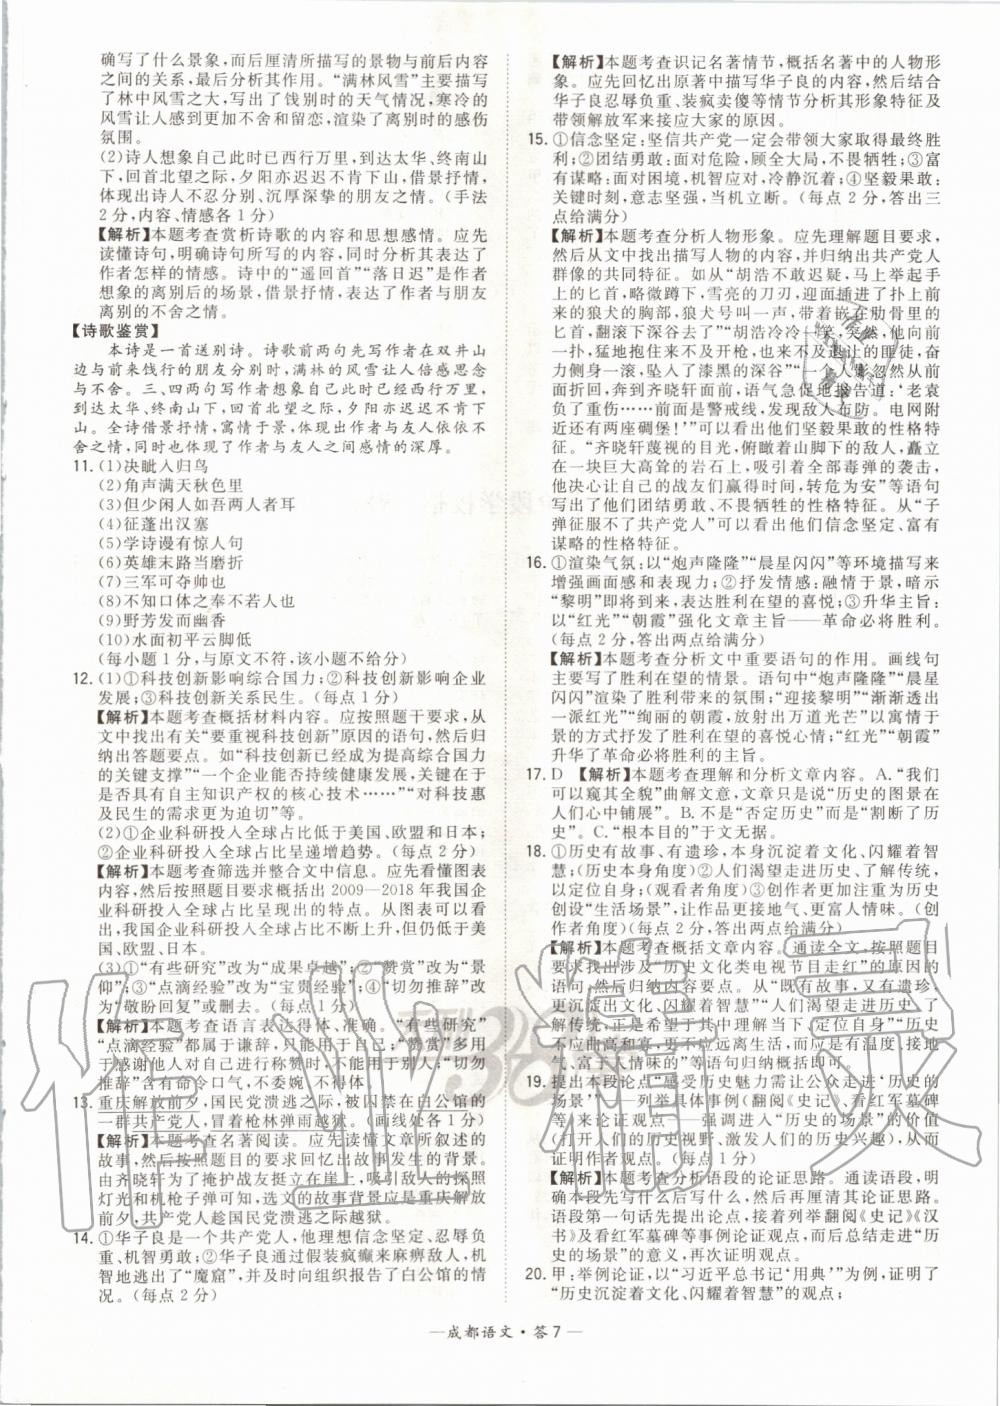 确写了什么景象，而后厘清所描写的景物与前后内容
之间的关系，最后分析其作用。“满林风雪”主要描写
了林中风雪之大，写出了饯别时的天气情况，寒冷的
风雪让人感到更加不舍和留恋，渲染了离别时的感伤
氛围。
(2)诗人想象自己此时已西行万里，到达太华、终南山
下，回首北望之际，夕阳亦迟迟不肯下山，借景抒情，
体现出诗人不忍分别、沉厚深挚的朋友之情。（手法
2分，内容、情感各1分）
【解析】本题考查赏析诗歌的内容和思想感情。应先
读懂诗句，明确诗句所写的内容，同时分析其表达了
作者怎样的情感。诗中的“遥回首”“落日迟”是作者
想象的离别后的场景，借景抒情，表达了作者与朋友
离别的不舍之情。
【诗歌鉴赏】
本诗是一首送别诗。诗歌前两句先写作者在双井山
边与前来饯行的朋友分别时，满林的风雪让人倍感思念
与不舍。三、四两句写作者想象自己此时已经西行万里，
到达太华、终南山下，回首北望之际，夕阳亦迟迟不肯下
山。全诗借景抒情，寓情于景，体现出作者与友人依依不
舍之情，同时也体现了作者与友人之间感情的深厚。
11. (1)决眦入归鸟
(2)角声满天秋色里
(3)但少闲人如吾两人者耳
(4)征蓬出汉塞
(5)学诗谩有惊人句
(6)英雄末路当磨折
(7)三军可夺帅也
(8)不知口体之奉不若人也
(9)野芳发而幽香
(10)水面初平云脚低
(每小题1分，与原文不符，该小题不给分)
12. (1)①科技创新影响综合国力；②科技创新影响企业
发展；③科技创新关系民生。（每点1分）
【解析】本题考查概括材料内容。应按照题干要求，从
文中找出有关“要重视科技创新”原因的语句，然后归
纳出答题要点。如“科技创新已经成为提高综合国力
的关键支撑”“一个企业能否持续健康发展，关键在于
是否具有自主知识产权的核心技术……”“对科技惠
及民生的需求更为迫切”等。
(2)①企业科研投入全球占比低于美国、欧盟和日本；
②企业科研投入全球占比呈递增趋势。（每点2分）
【解析】本题考查筛选并整合文中信息。应先看懂图表
内容，然后按照题目要求概括出2009—2018年我国企
业科研投入全球占比呈现出的特点。从图表可以看
出，我国企业科研投入全球占比不断上升，但仍低于美
国、欧盟、日本。
(3)①“有些研究”改为“成果卓越”；②“赞赏”改为“景
仰”；③“点滴经验”改为“宝贵经验”；④“切勿推辞”改
为“敬盼回复”或删去。（每点1分）
【解析】本题考查语言表达得体、准确。“有些研究”
“点滴经验”都属于谦辞，只能用于自己；“赞赏”多用
于他人对自己或自己对他人进行称赞时，不能用；“切勿
推辞”含有命令口气，不委婉、不得体。
13. 重庆解放前夕，国民党溃逃之际，被囚禁在白公馆的
一群共产党人，冒着枪林弹雨越狱。（画线处各1分）
【解析】本题考查名著阅读。应先读懂文章所叙述的
故事，然后按照题目的要求回忆出故事发生的背景。
由齐晓轩为了掩护战友挺立在崖上，吸引敌人的探照
灯光和机枪子弹可知，选文的故事背景应是重庆解放
前夕，共产党人趁国民党溃逃之际越狱。
14. ①华子良是一个共产党人，他理想信念坚定、忍辱负
重、机智勇敢；②华子良通过假装疯癫来麻痹敌人，机
智地逃出了“魔窟”，并及时向组织报告了白公馆的情
况。（每点2分）
【解析】本题考查识记名著情节，概括名著中的人物形
象。应先回忆出原著中描写华子良的内容，然后结合
华子良忍辱负重、装疯卖傻等情节分析其形象特征及
带领解放军来接应大家的原因。
15. ①信念坚定：坚信共产党一定会带领大家取得最终胜
利；②团结勇敢：面对危险，顾全大局，不畏牺牲；③富
有谋略：面对困境，机智应对，冷静沉着；④坚毅果敢：
关键时刻，意志坚强，当机立断。（每点2分，答出三
点给满分）
【解析】本题考查分析人物形象。应先理解题目要求，
然后从文中找出描写人物的内容，并归纳出共产党人
群像的共同特征。从“胡浩不敢迟疑，马上举起手
上的匕首，略微蹲下，雪亮的刀刃，迎面插进了扑上前
来的狼犬的胸膛，狼犬号叫一声，带着嵌在肋骨里的
匕首，翻滚下深谷去了”“胡浩冷冷一笑，突然，他向前
一扑，猛地抱住来不及开枪、也来不及退让的匪徒，奋
力侧身一滚，坠入了漆黑的深谷”“一个人影忽然从前
面折回，奔到齐晓轩面前，语气急促地报告道：‘老袁
负了重伤……前面是警戒线，发现敌人布防。电网附
近还有两座碉堡！’”可以看出人物坚毅果敢的性格特
征。“齐晓轩蔑视的目光，俯瞰着山脚下的敌人，矗立
在一块巨大高耸的岩石上，吸引着弹雨毒蛇的袭击，
他决心让自己的战友们赢得时间，转危为安”等语句
写出了他们团结勇敢、不畏牺牲的性格特征。从“子
弹征服不了共产党人”可以看出他们信念坚定、富有
谋略的性格特征。
16. ①渲染气氛：以“炮声隆隆”“晨星闪闪”等环境描写来
增强画面感和表现力；②抒发情感：融情于景，暗示
“黎明”即将到来，表达胜利在望的喜悦；③升华主旨：
以“红光”“朝霞”强化文章主旨——革命必将胜利。
（每点2分，答出两点给满分）
【解析】本题考查分析文中重要语句的作用。画线句
主要写了胜利前的情景。语句中“炮声隆隆”“晨星
闪闪”渲染了胜利带来的氛围。“迎接黎明”“渐渐透出
一派红光”“绚丽的朝霞，放射出万道光芒”以寓情于
景的方式抒发了胜利在望的喜悦心情；“红光”“朝霞”
升华了革命必将胜利的主旨。
17. D 【解析】本题考查理解和分析文章内容。A.“我们
可以窥其全貌”曲解文意，文章只是说“历史的图景在
人们心中铺展”。B.不是“否定历史”而是“割断了历
史”。C.“根本目的”于文无据。
18. ①历史有故事、有遗珍，本身沉淀着文化、闪耀着智
慧；(历史角度)②人们渴望走进历史、了解传统，
以定位自身；(观看者角度)③创作者更加注重为历史
创设“生活场景”，让作品更接地气、更富人情味。（创
作者角度）（每点2分，答出两点给满分）
【解析】本题考查概括文章内容。通读全文，按照题目
要求找出涉及“历史文化类电视节目走红”的原因的
语句，然后归纳内容要点。从“既有故事，又有遗珍，
更沉淀出文化、闪耀着智慧”“人们渴望走进历史、了解
传统，正是希望于其中理解当下、定位自身”“历史不
应曲高和寡，更不应远离生活，而应有温度、接地
气、富于人情味的”等语句归纳概括即可。
19. 提出本段论点“感受历史魅力需让公众走进‘历史的
场景’”——列举具体事例（翻阅《史记》、看红军墓碑
等）来论证观点——强调进入“历史的场景”的价值
（打开人们的历史视野、激发人们的历史兴趣），从而
证明作者观点。（每点1分）
【解析】本题考查分析语段的论证思路。通读语段，明
确本段先写什么后写什么，然后再厘清其论证思路。
语段第一句话先提出论点，接着列举翻阅《史记》《汉
书》及看红军墓碑等事例，来论证观点，最后写出走进“历
史的场景”的意义，再次证明观点。
20. 甲：举例论证，以“习近平总书记‘用典’”为例，证明了
“历史沉淀着文化、闪耀着智慧”的观点；
—成都语文·答7—
作业精灵